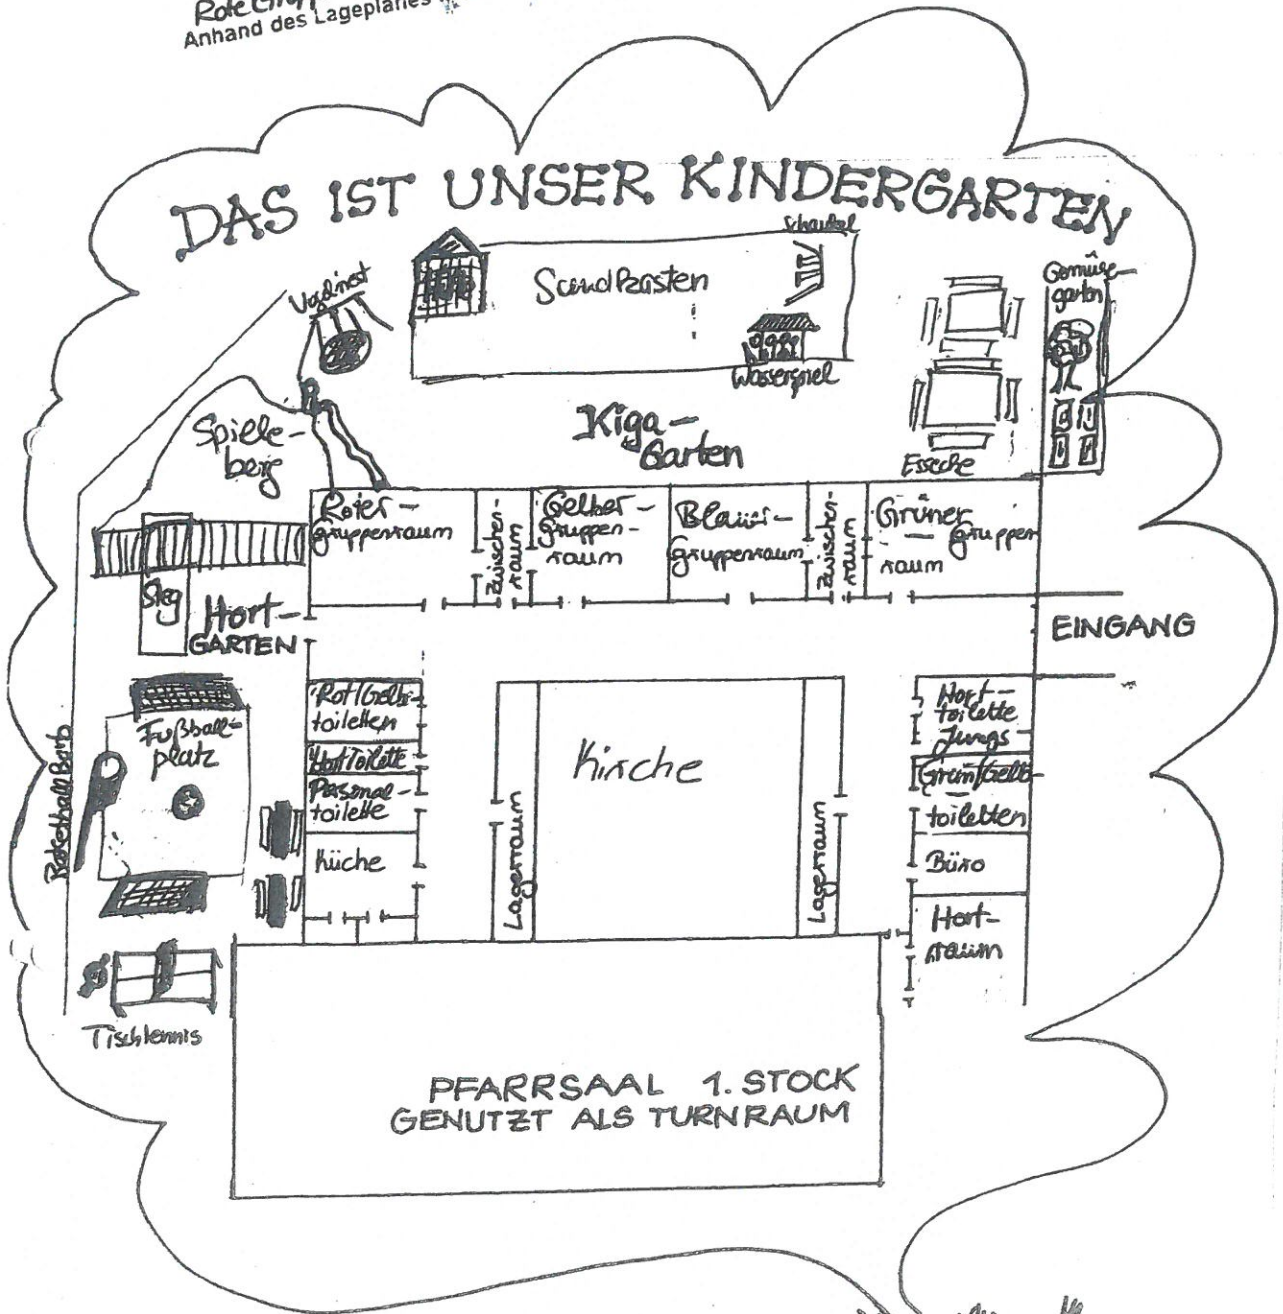 Rote
Anhand des Lageplanes
DAS IST UNSER KINDERGARTEN
Schaukel
Vogelnest
Sandkasten
Gemüse-
garten
Wasserspiel
Kiga-
Garten
Spiele-
berg
Essecke
Roter-
gruppenraum
Zwischen-
raum
Gelber-
gruppen-
raum
Blauer-
gruppenraum
Zwischen-
raum
Grüner
- gruppen
raum
Steg
Hort-
GARTEN
EINGANG
Rot/Gelb-
toiletten
Hort-
toilette
Jungs
Fußball-
platz
Kirche
Hort Toilette
Grün/Gelb-
toiletten
Personal-
toilette
Lagerraum
Lagerraum
Küche
Büro
Hort-
raum
Tischtennis
PFARRSAAL 1. STOCK
GENUTZT ALS TURNRAUM